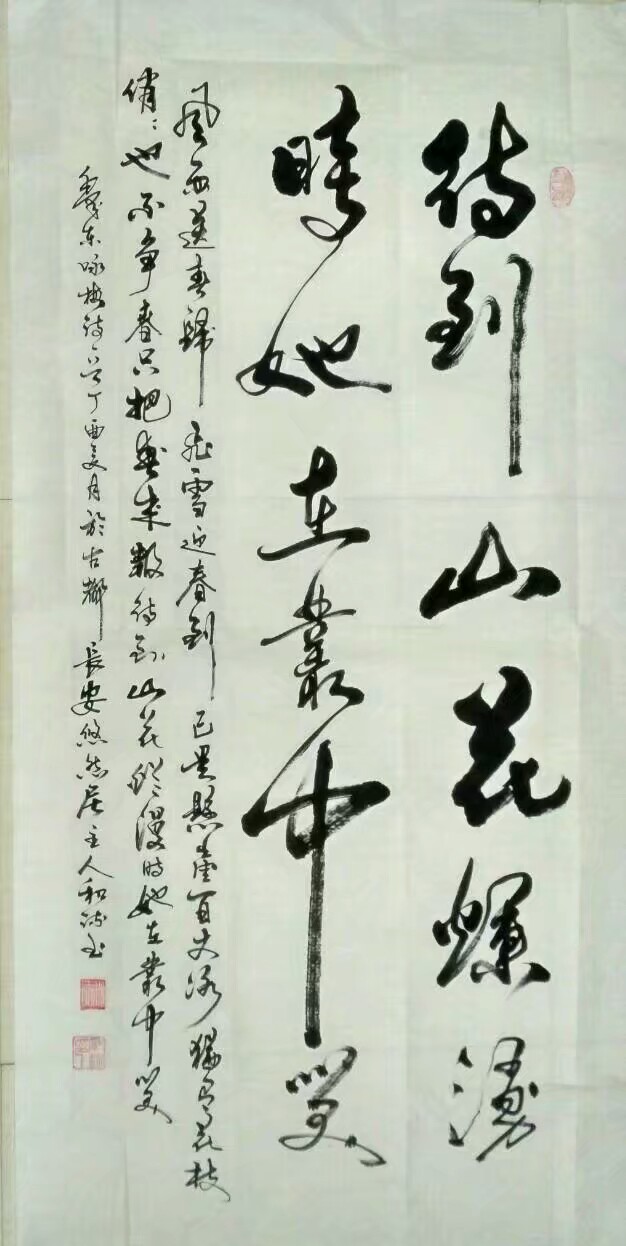 待到山花爛漫
時她在叢中笑
風雨送春歸 飛雪迎春到 已是懸崖百丈冰 猶有花枝
俏〻也不爭春只把春來報待到山花爛漫時她在叢中笑
东咏梅詩一首丁酉夏月於古都 長安悠然居主人和